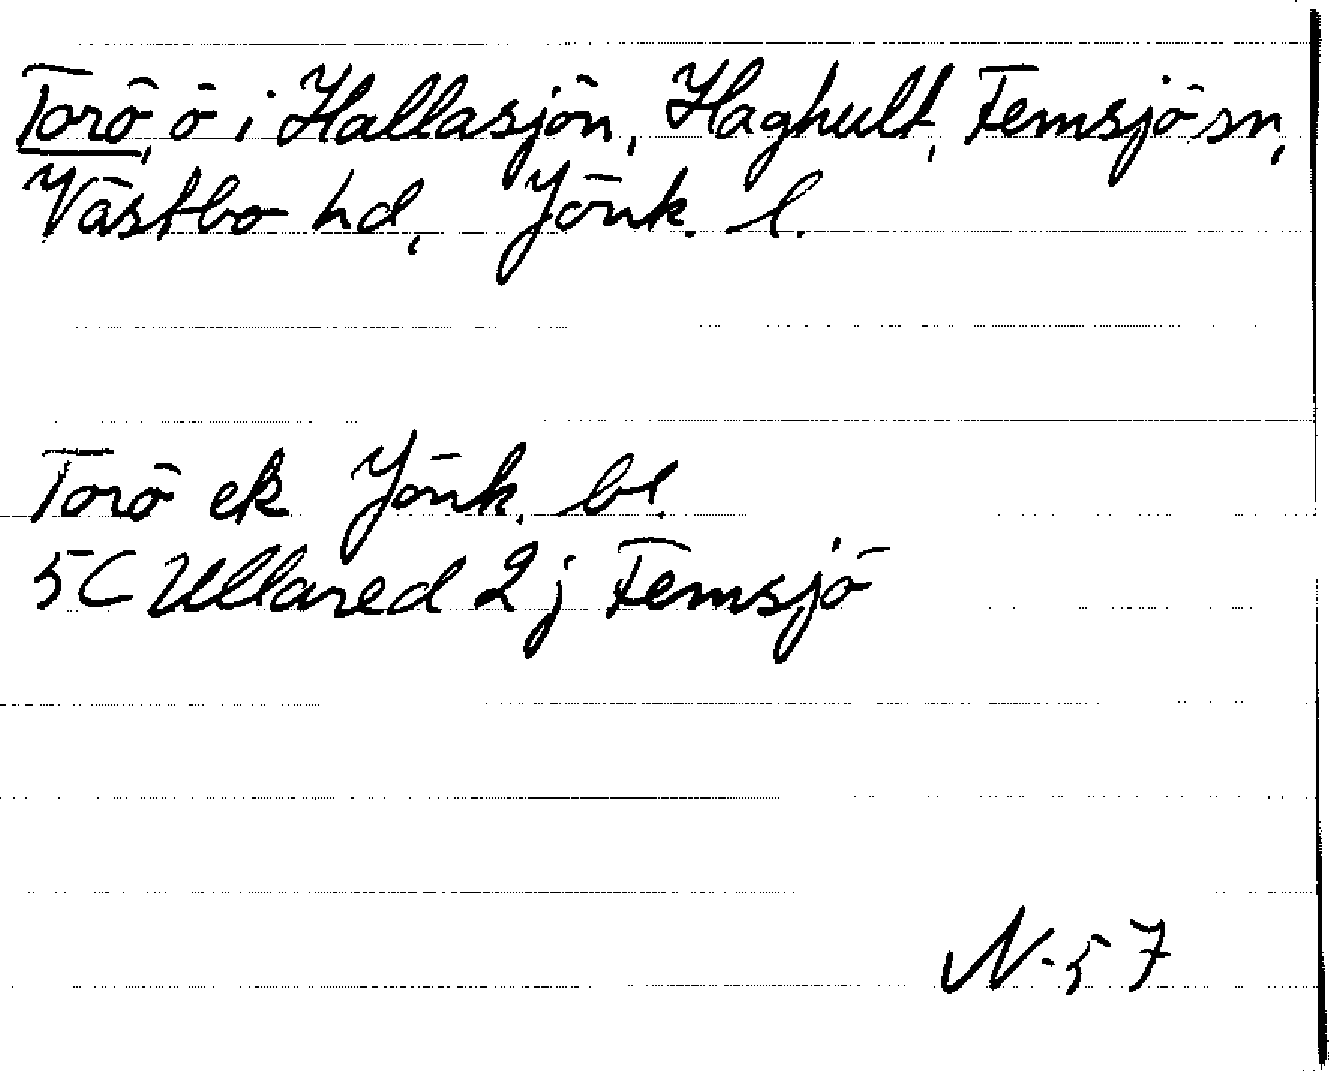 Torö, ö i Hallasjön, Haghult, Femsjö sn,
Västbo hd, Jönk. l.
Torö ek Jönk. bl.
5C Ullared 2j Femsjö
N-57